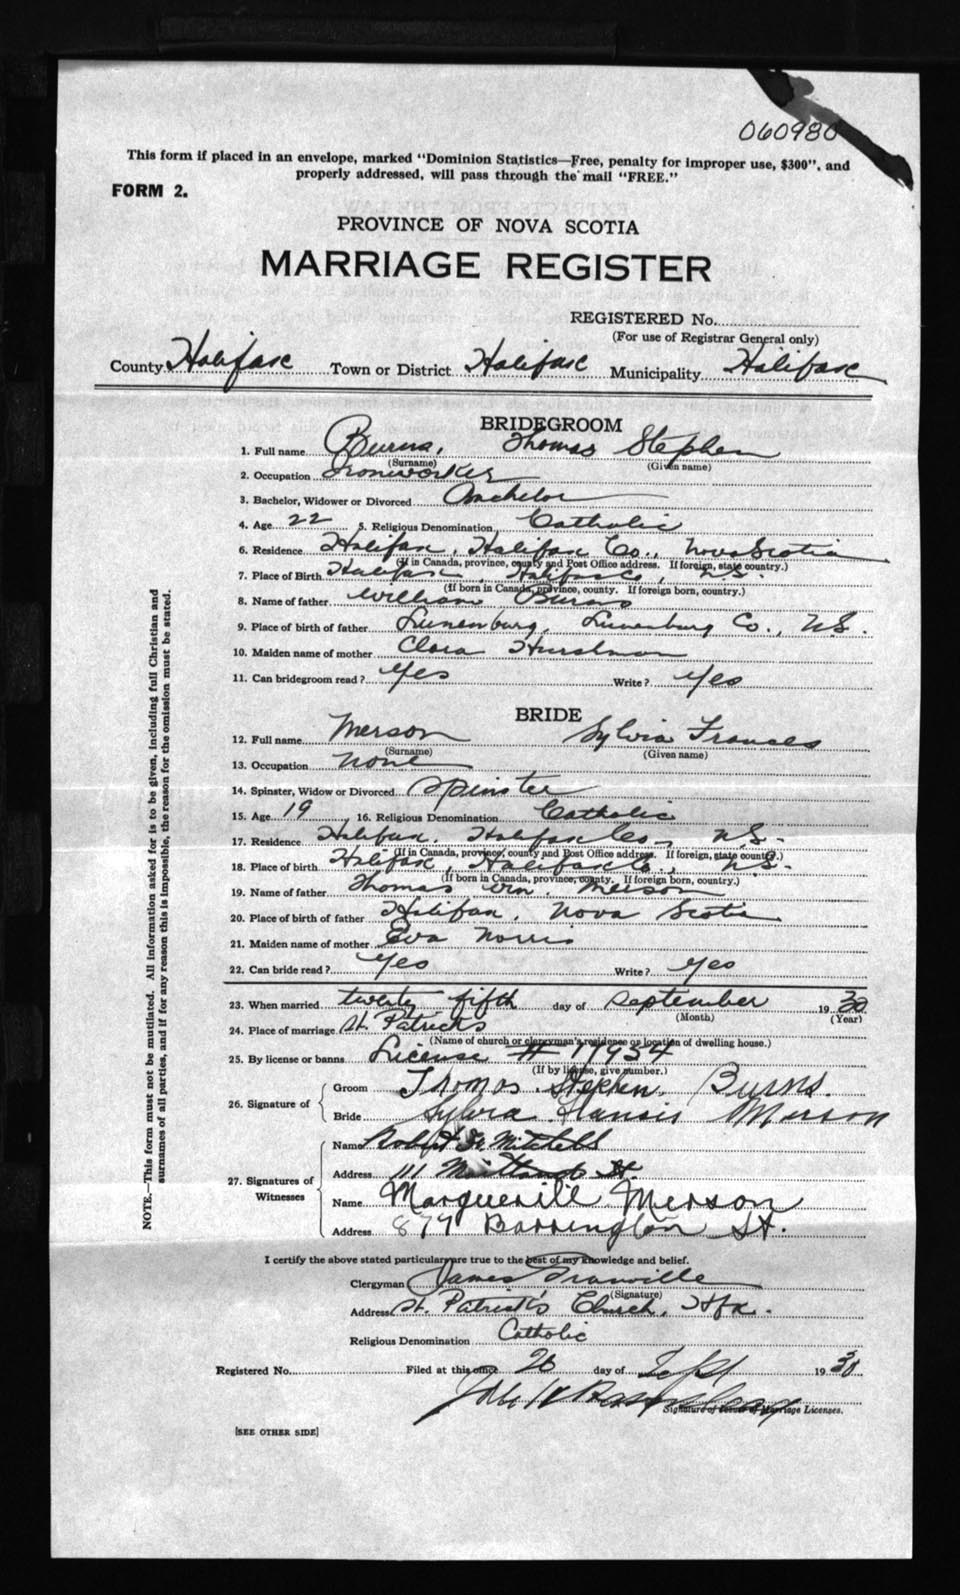 060980
This form if placed in an envelope, marked "Dominion Statistics—Free, penalty for improper use, $300", and
properly addressed, will pass through the mail "FREE."
FORM 2.
PROVINCE OF NOVA SCOTIA
MARRIAGE REGISTER
REGISTERED No.
(For use of Registrar General only)
County Halifax Town or District Halifax Municipality Halifax
BRIDEGROOM
1. Full name Burns, Thomas Stephen
(Surname) (Given name)
2. Occupation Ironworker
3. Bachelor, Widower or Divorced Bachelor
4. Age 22 5. Religious Denomination Catholic
6. Residence Halifax, Halifax Co., Nova Scotia
(If in Canada, province, county and Post Office address. If foreign, state country.)
7. Place of Birth Halifax, Halifax Co, N.S.
(If born in Canada, province, county. If foreign born, country.)
8. Name of father William Burns
9. Place of birth of father Lunenburg, Lunenburg Co., N.S.
10. Maiden name of mother Clara
11. Can bridegroom read? Yes Write? Yes
BRIDE
12. Full name Merson Sylvia Frances
(Surname) (Given name)
13. Occupation None
14. Spinster, Widow or Divorced Spinster
15. Age 19 16. Religious Denomination Catholic
17. Residence Halifax, Halifax Co, N.S.
(If in Canada, province, county and Post Office address. If foreign, state country.)
18. Place of birth Halifax, Halifax Co, N.S.
(If born in Canada, province, county. If foreign born, country.)
19. Name of father Thomas Wm. Merson
20. Place of birth of father Halifax, Nova Scotia
21. Maiden name of mother Eva Norris
22. Can bride read? Yes Write? Yes
23. When married twenty fifth day of September 1930
(Month) (Year)
24. Place of marriage St. Patricks
(Name of church or clergyman's residence or location of dwelling house.)
25. By license or banns License # 11954
(If by license, give number.)
26. Signature of Groom Thomas Stephen Burns.
Bride Sylvia Francis Merson
27. Signatures of Witnesses Name Robert Mitchell
Address 111 Maitland St.
Name Marguerite Merson
Address 879 Barrington St.
I certify the above stated particulars are true to the best of my knowledge and belief.
Clergyman James Granville
(Signature)
Address St. Patrick's Church, Hfx.
Religious Denomination Catholic
Registered No. Filed at this office 26 day of Sept 1930
Signature of Issuer of Marriage Licenses.
[SEE OTHER SIDE]
NOTE.—This form must not be mutilated. All information asked for is to be given, including full Christian and
surnames of all parties, and if for any reason this is impossible, the reason for the omission must be stated.